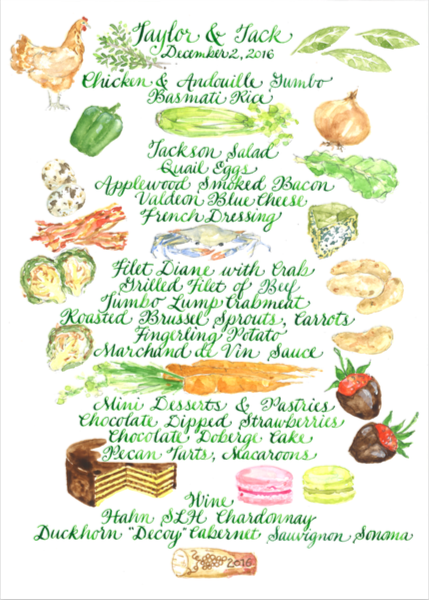 Taylor & Jack
December 2, 2016
Chicken & Andouille Gumbo
Basmati Rice
Jackson Salad
Quail Eggs
Applewood Smoked Bacon
Valdeon Blue Cheese
French Dressing
Filet Diane with Crab
Grilled Filet of Beef
Jumbo Lump Crabmeat
Roasted Brussel Sprouts, Carrots
Fingerling Potato
Marchand de Vin Sauce
Mini Desserts & Pastries
Chocolate Dipped Strawberries
Chocolate Doberge Cake
Pecan Tarts, Macaroons
Wine
Hahn SLH Chardonnay
Duckhorn "Decoy" Cabernet Sauvignon, Sonoma
2016